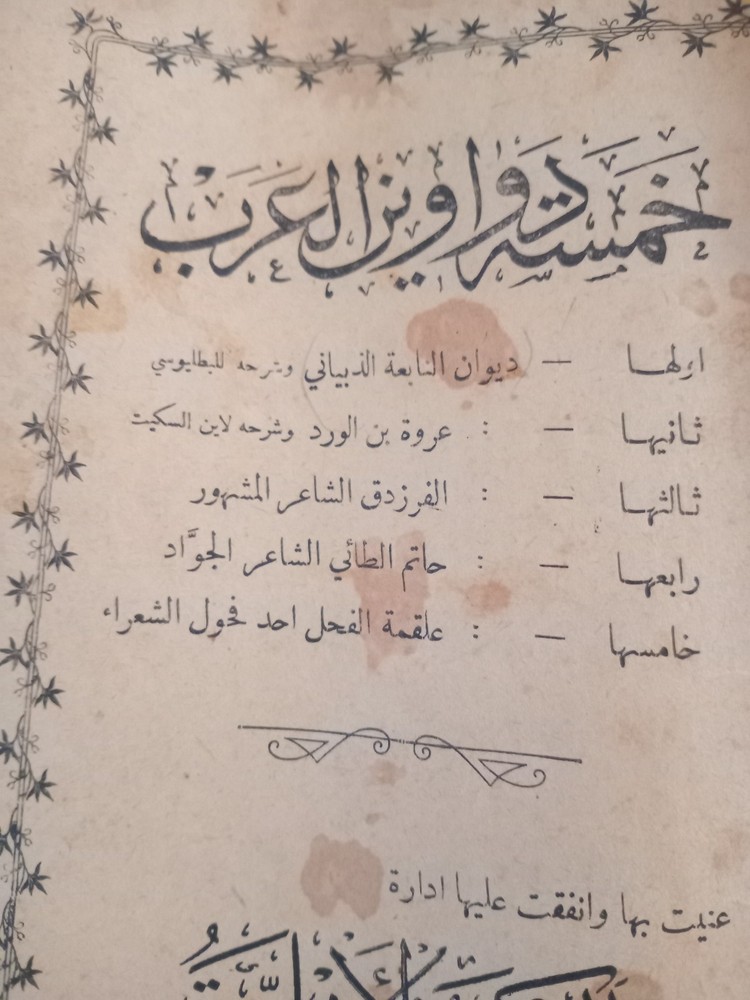 خمسة دواوين العرب
اولها — ديوان النابغة الذبياني وشرحه للبطليوسي
ثانيها — : عروة بن الورد وشرحه لابن السكيت
ثالثها — : الفرزدق الشاعر المشهور
رابعها — : حاتم الطائي الشاعر الجوَّاد
خامسها — : علقمة الفحل احد فحول الشعراء
عنيت بها وانفقت عليها ادارة